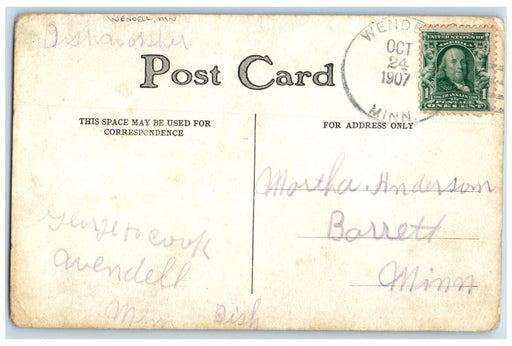 WENDELL, MN
Post Card
WENDE
OCT
24
1907
MINN.
UNITED STATES OF AMERICA
FRANKLIN
POSTAGE
ONE CENT
THIS SPACE MAY BE USED FOR
CORRESPONDENCE
FOR ADDRESS ONLY
Martha Anderson
Barrett
Minn
George H Cook
Wendell